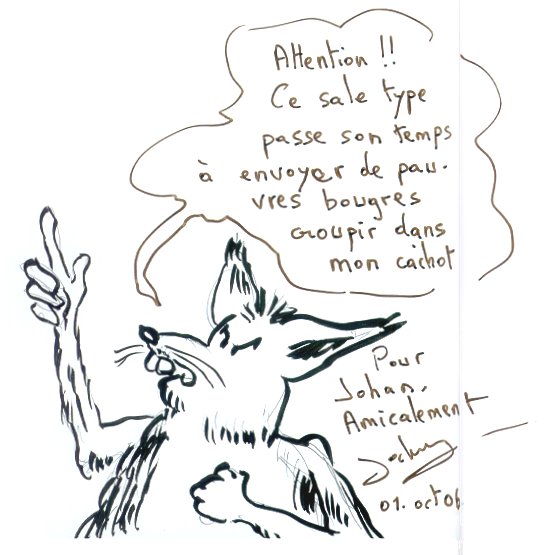 Attention !!
Ce sale type
passe son temps
à envoyer de pau-
vres bougres
croupir dans
mon cachot
Pour
Johan.
Amicalement
01. oct 06